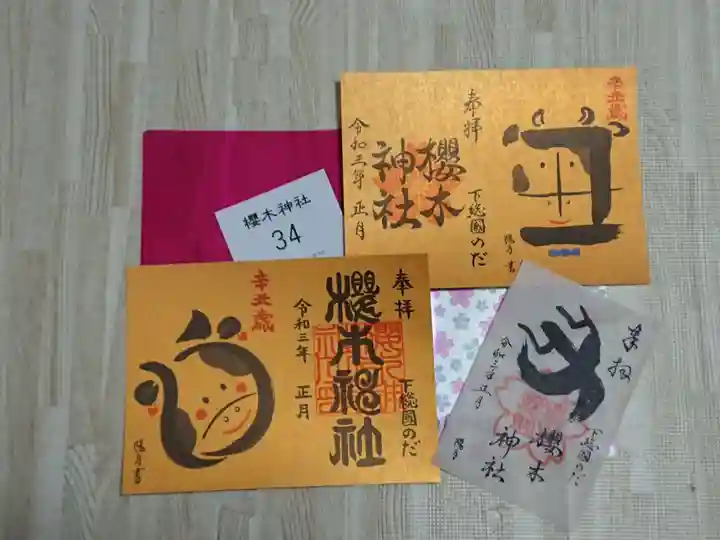 櫻木神社
34
辛丑歳
奉拝
櫻木
神社
下総國のだ
令和三年 正月
陽月書
奉拝
櫻木神社
下総國のだ
令和三年 正月
辛丑歳
陽月書
奉拝
下総國のだ
櫻木
神社
令和三年正月
陽月